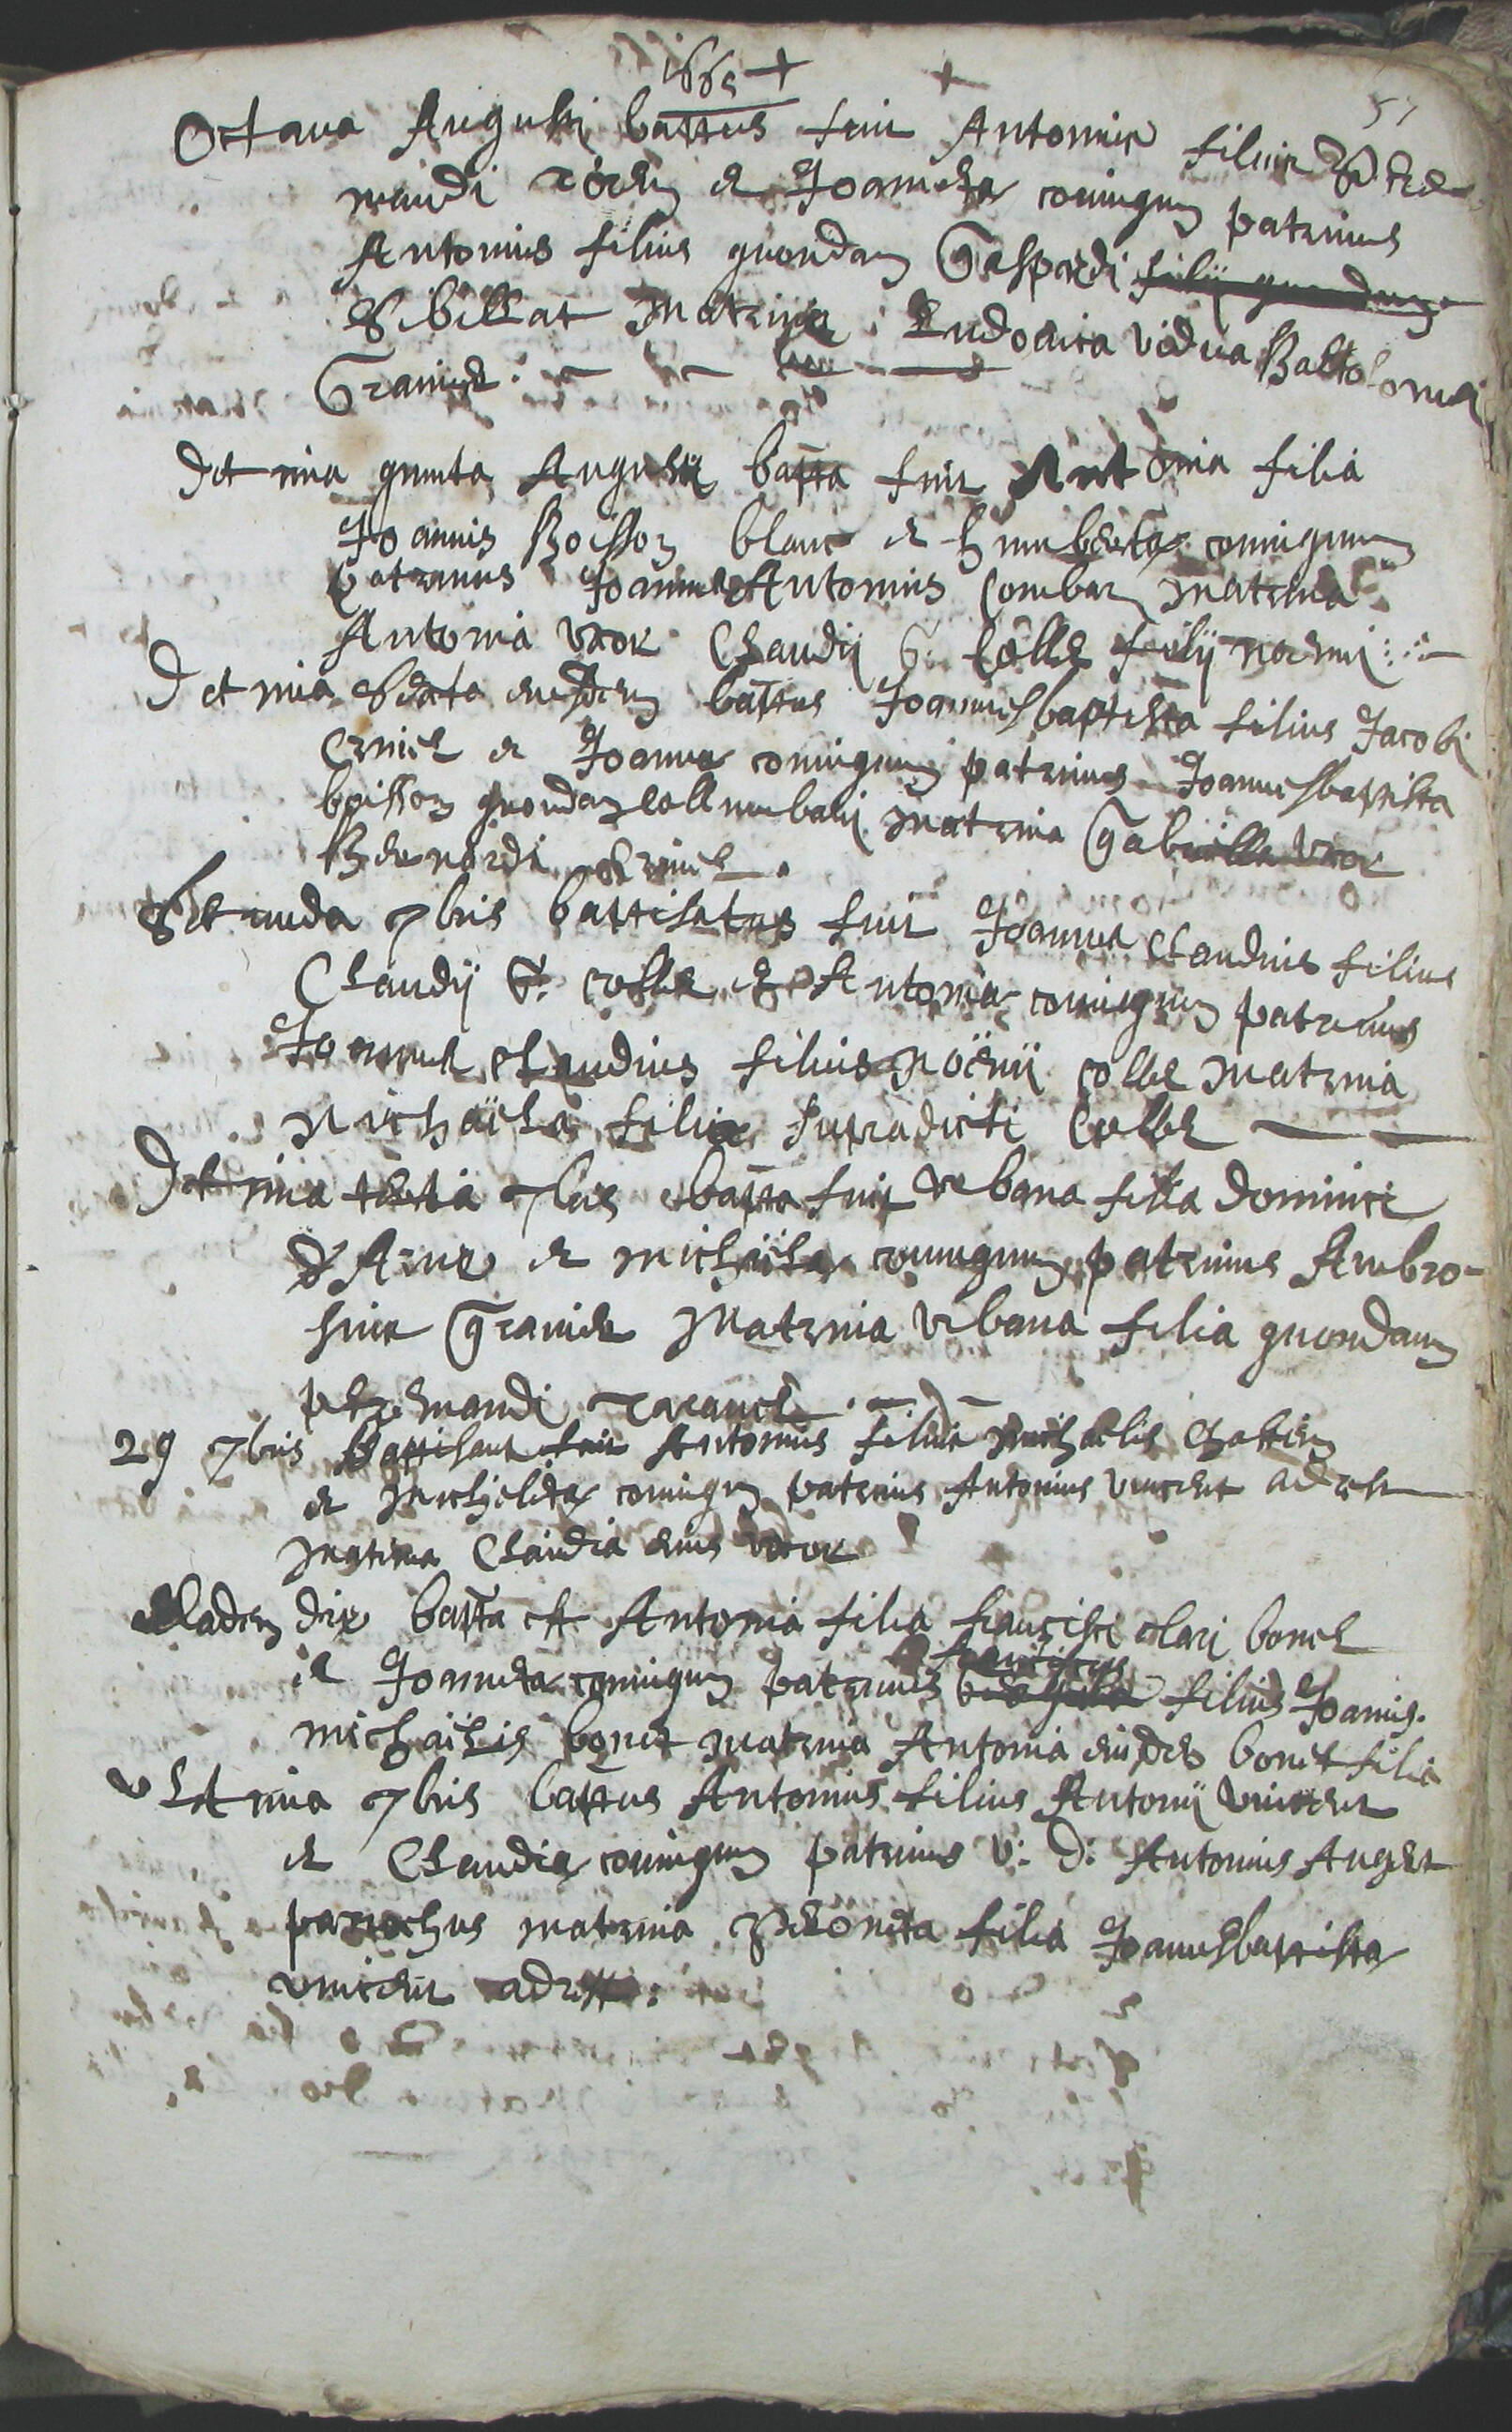 1665 +
+
57
Octava Augusti battus fuit Antonius filius
mandi et Joannetæ coniugum patrinus
Antonius filius quondam Gaspardi filij quondam
Sibillat Matrina Ludovica vidua Bartolomei
Gramet
Decima quinta Augusti batta fuit Antonia filia
Joannis Boisson blanc et humbertæ coniugum
patrinus Joannes Antonius Combaz matrina
Antonia uxor Claudij G. Colle filij noemi
Decima sexta eiusdem battus Joannesbaptista filius Jacobi
et Joannæ coniugum patrinus Joannesbaptista
boisson quondam Collumbani Matrina Gabriella uxor
Bernardi
Secunda 7bris battisatus fuit Joannes Claudius filius
Claudij G. Colle et Antoniæ coniugum patrinus
Joannes Claudius filius Noënij Colle Matrina
Michaëla filia supradicti Colle
Decima tertia 7bris batta fuit Urbana filia Dominici
d'Arve et Michaëlæ coniugum patrinus Ambro-
sius Gramet Matrina Urbana filia quondam
petremandi
29 7bris Battisatus fuit Antonius filius Michaelis
et Michelétæ coniugum patrinus Antonius vincent
Matrina Claudia eius uxor
Eadem die batta est Antonia filia francisci bonet
et Joannetæ coniugum patrinus franciscus filius Joannis
michaëlis bonet matrina Antonia eiusdem bonet filia
Ultima 7bris battus Antonius filius Antonij Vincent
et Claudiæ coniugum patrinus v: D: Antonius Auget
parrochus matrina Peroneta filia Joannesbaptista
vincent